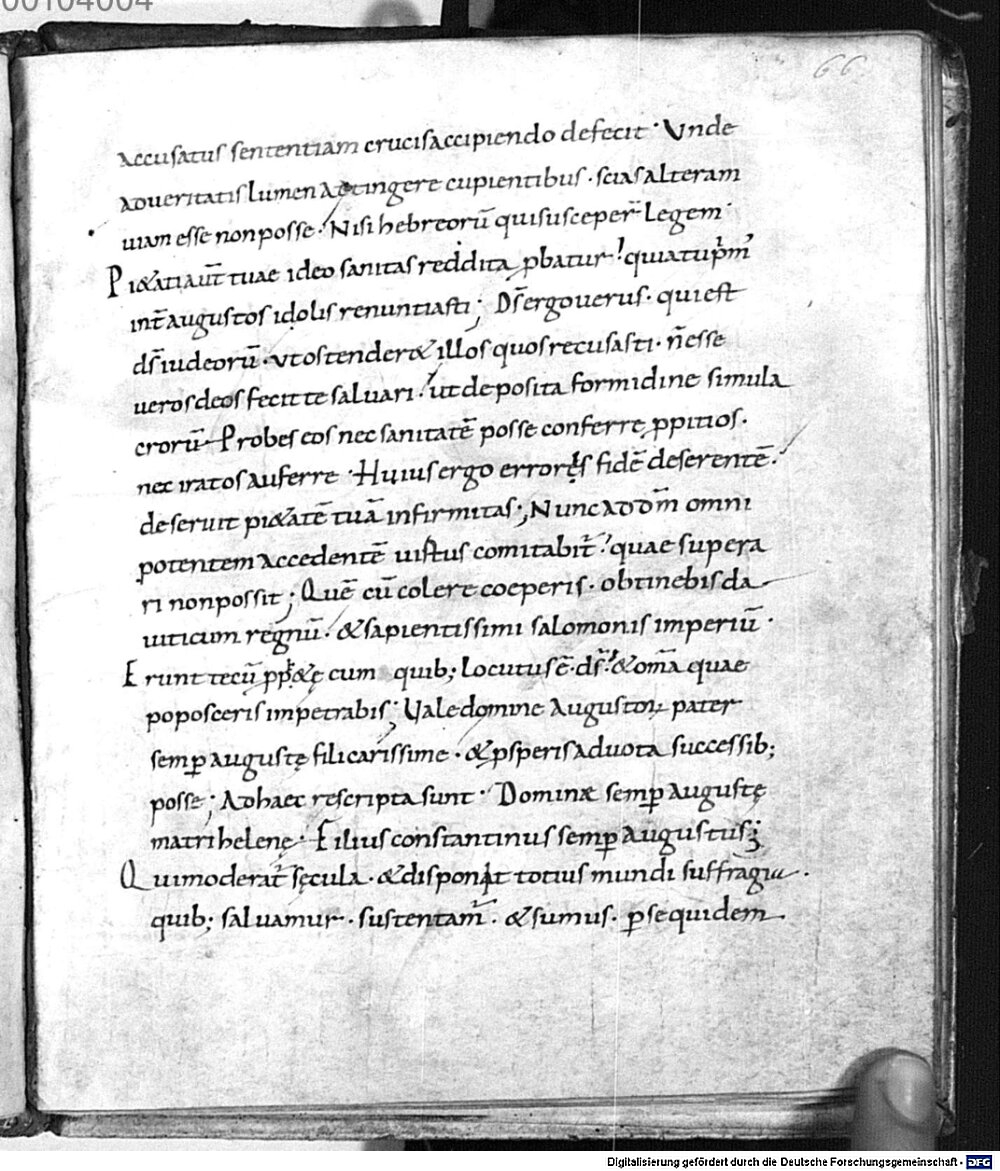 00104004
66
accusatus sententiam crucis accipiendo defecit · Unde
ad veritatis lumen attingere cupientibus · scias alteram
uiam esse non posse · Nisi hebreorū qui susceper̄ Legem ·
Pi&ati aūt tuae ideo sanitas reddita ꝓbatur · quia tu p̄m
int̄ augustos idolis renuntiasti ; Ds̄ ergo uerus · qui est
ds̄ iudeorū · ut ostender& illos quos recusasti · n̄ esse
ueros deos fecit te saluari · ut deposita formidine simula
crorū · Probes eos nec sanitatē posse conferre ꝓpitios ·
nec iratos auferre · Huius ergo erroris fidē deserentē ·
deseruit pi&atē tuā infirmitas ; Nunc ad dm̄ omni
potentem accedentē uistus comitabit̄ · quae supera
ri non possit ; Quē cū colere coeperis · obtinebis da
uiticum regnū · & sapientissimi salomonis imperiū ·
Erunt tecū ꝓph&ę cum quib; locutus ē · ds̄ · & om̄a quae
poposceris impetrabis ; Uale domine Auguston pater
semꝑ augustę fili carissime · & ꝓsperis ad uota successib;
posse ; Ad haec rescripta sunt · Dominæ semꝑ Augustę
matri helenę · Filius constantinus semꝑ augustus ;
Qui moderat̄ sęcula · & disponit totius mundi suffragia ·
quib; saluamur · sustentam̄ · & sumus · ꝑse quidem
Digitalisierung gefördert durch die Deutsche Forschungsgemeinschaft - DFG